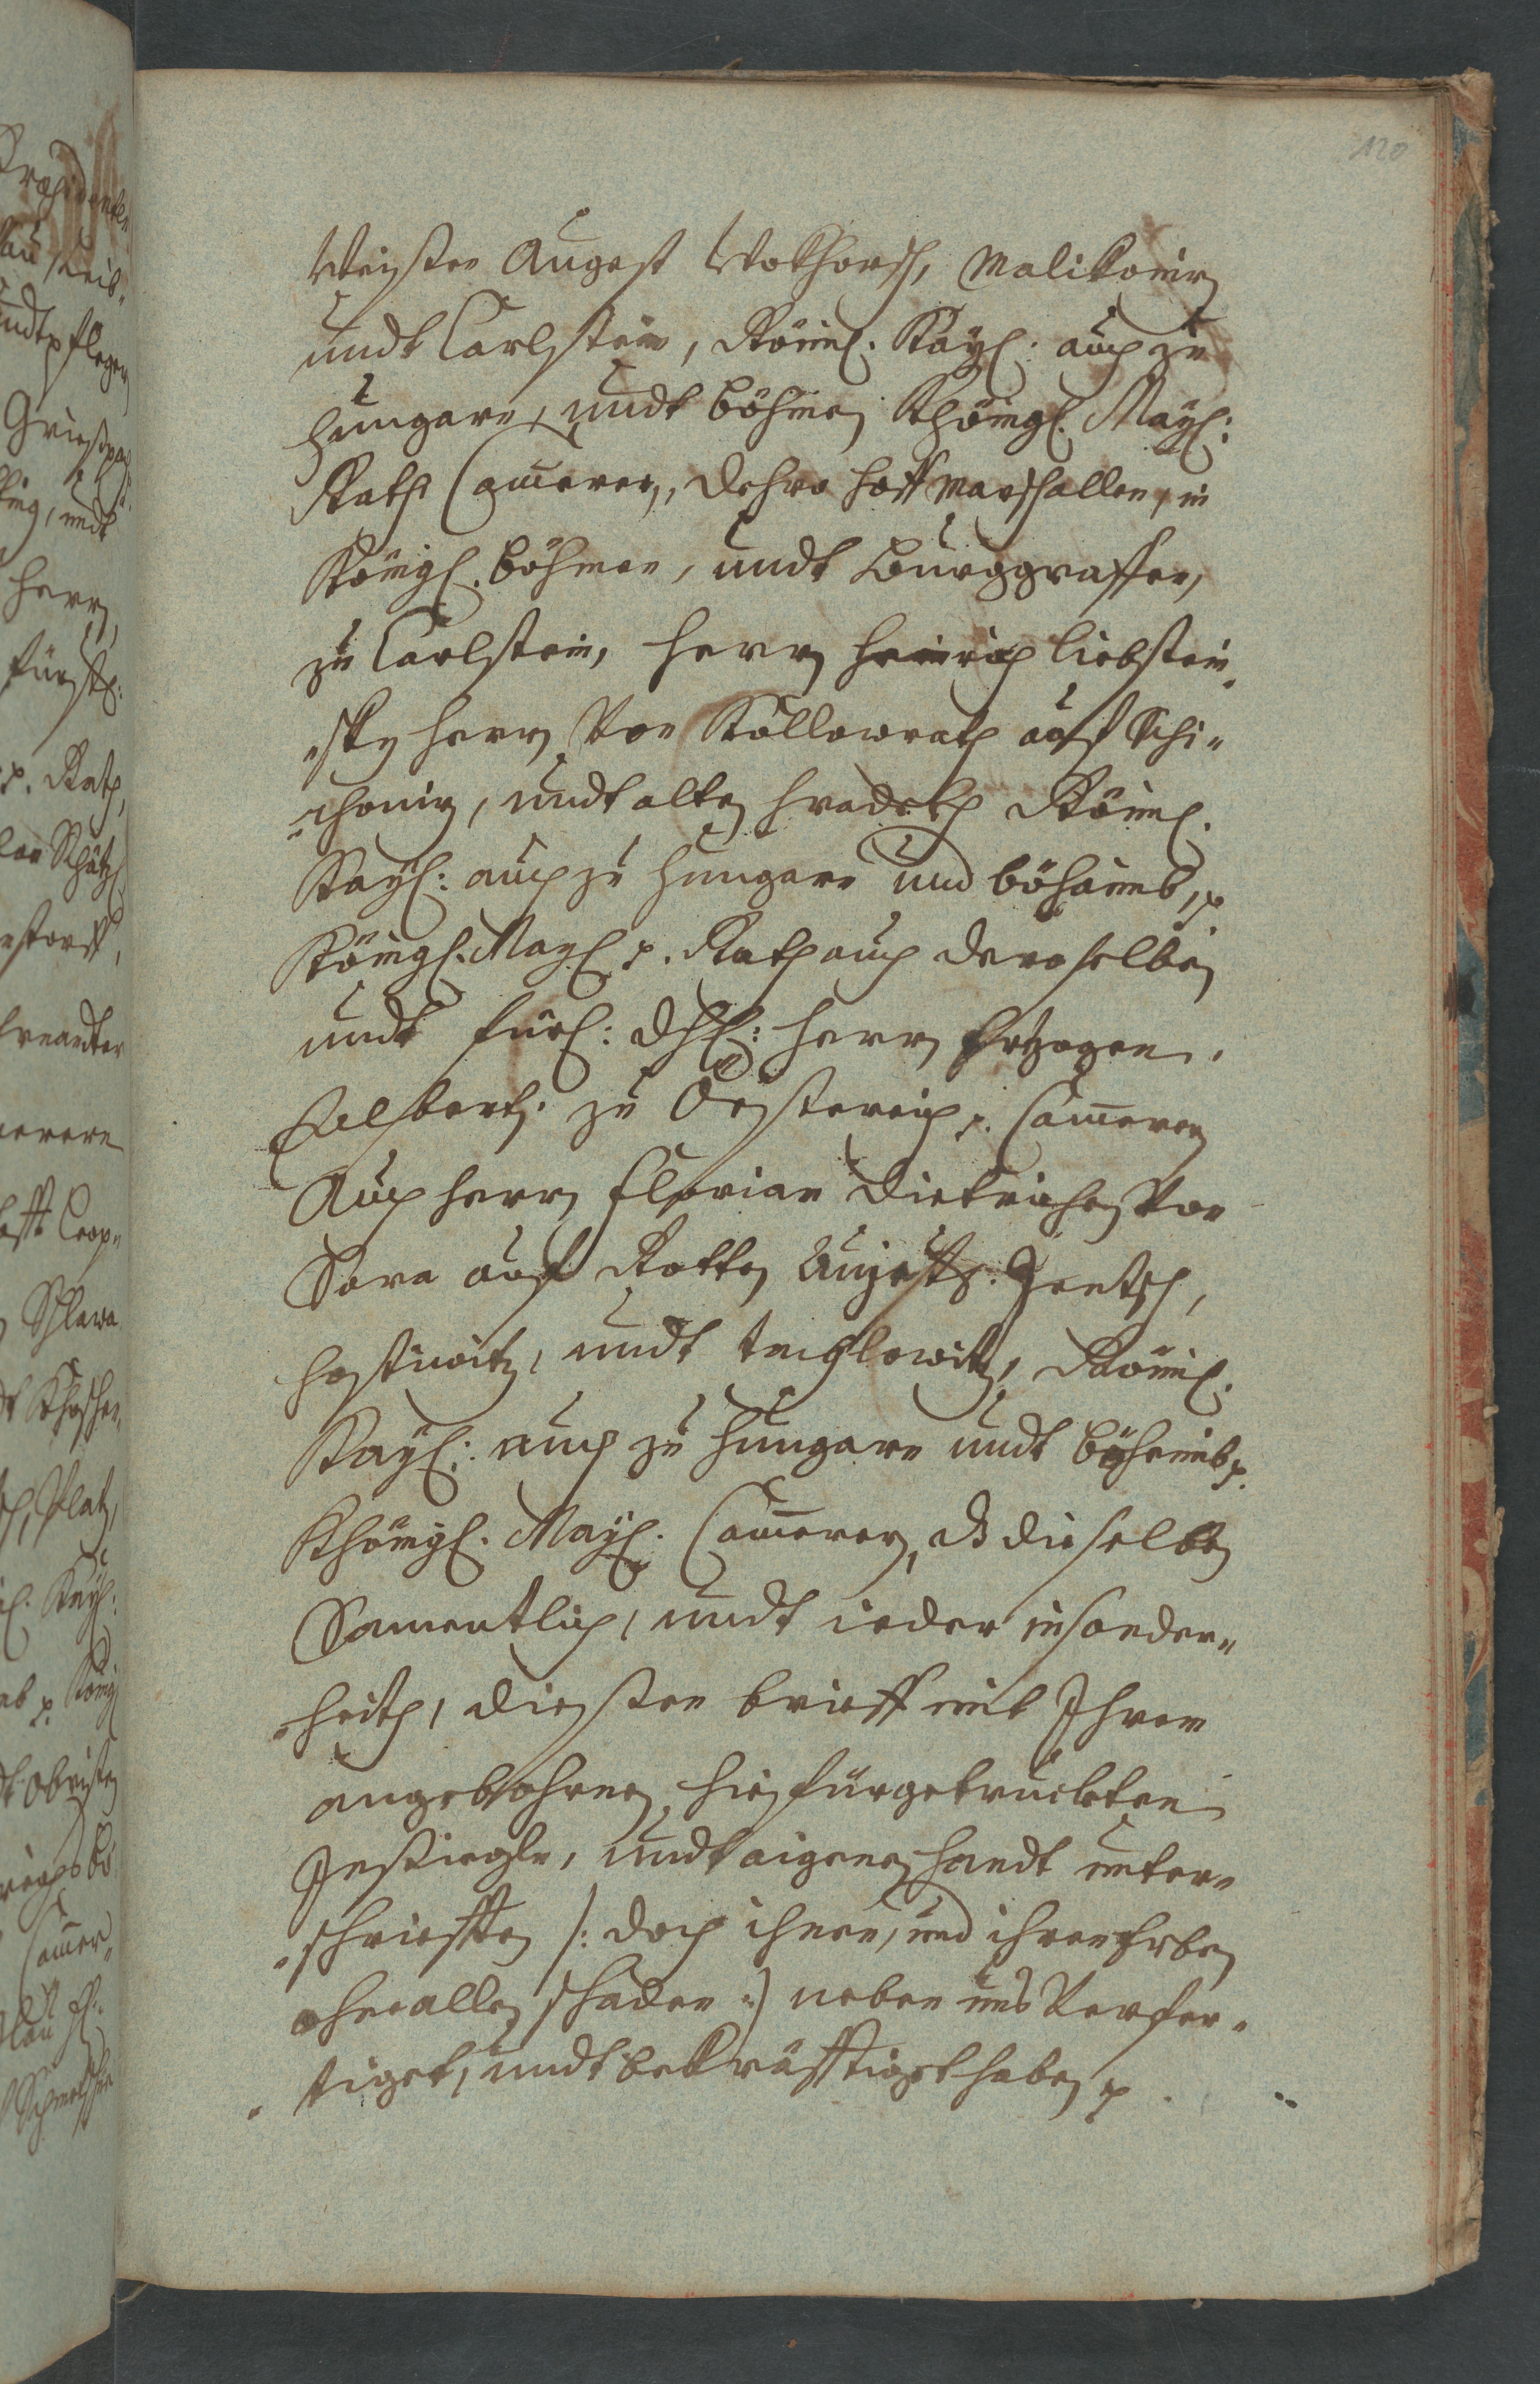 120
Weisßen Augest Wokhorsch, Malikowitz
undt Carlstein, Römisch. Kayß: auch zu
Hungarn, undt Böhmen Khönigl. Mayst:
Rath Cammerer, Dehro Hoff Marschallen, in
Königl. Böhmen, undt Burggraffen,
zu Carlstein, Herrn Heinrich Liebstein„
„sky Herrn Von Kollowrath auf Schi„
„chowitz, undt alten Hradekh Römisch.
Kayß: auch zu Hungarn und Böhaimb, p
Königl. Mayst p. Rath auch deroselben
undt fürstl: Dhl: Herrn Ertzogen.
Albert. zu Össtereich p. Cammerer
Auch Herrn Florian Dietrichen Von
Sara auf Rotten Augestz. Jentsch,
Hostiwitz, undt Teichlowitz, Römisch.
Kayß: auch zu Hungarn undt Böhemib p.
Khönigl. Mayst. Cammerer, dß dieselben
Samentlich, undt ieder insonder„
„heith, diesßen brieff mit Ihrem
angebohrnen hiefürgetruckten
Insiegln, undt aigener handt unter„
„schriefften /: doch ihnen, und ihren Erben
ohne allen schaden :/ neben uns Verfer„
„tiget, undt bekräfftiget haben p.